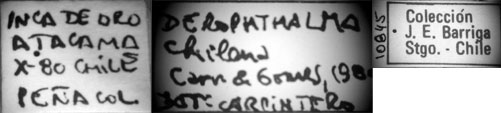 INCA DE ORO
ATACAMA
X-80 CHILE
PEÑA COL.
DEROPHTHALMA
chilena
Carv & Gomes, (980
DET: CARPINTERO
10845
Colección
J. E. Barriga
Stgo. - Chile